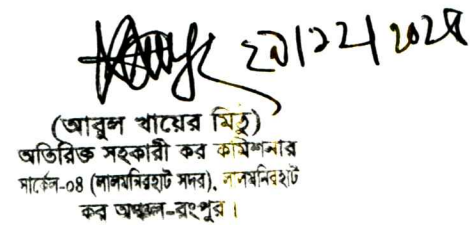 ২০/১২/২০২৪
(আবুল খায়ের মিঠু)
অতিরিক্ত সহকারী কর কমিশনার
সার্কেল-০৪ (লালমনিরহাট সদর), লালমনিরহাট
কর অঞ্চল-রংপুর।